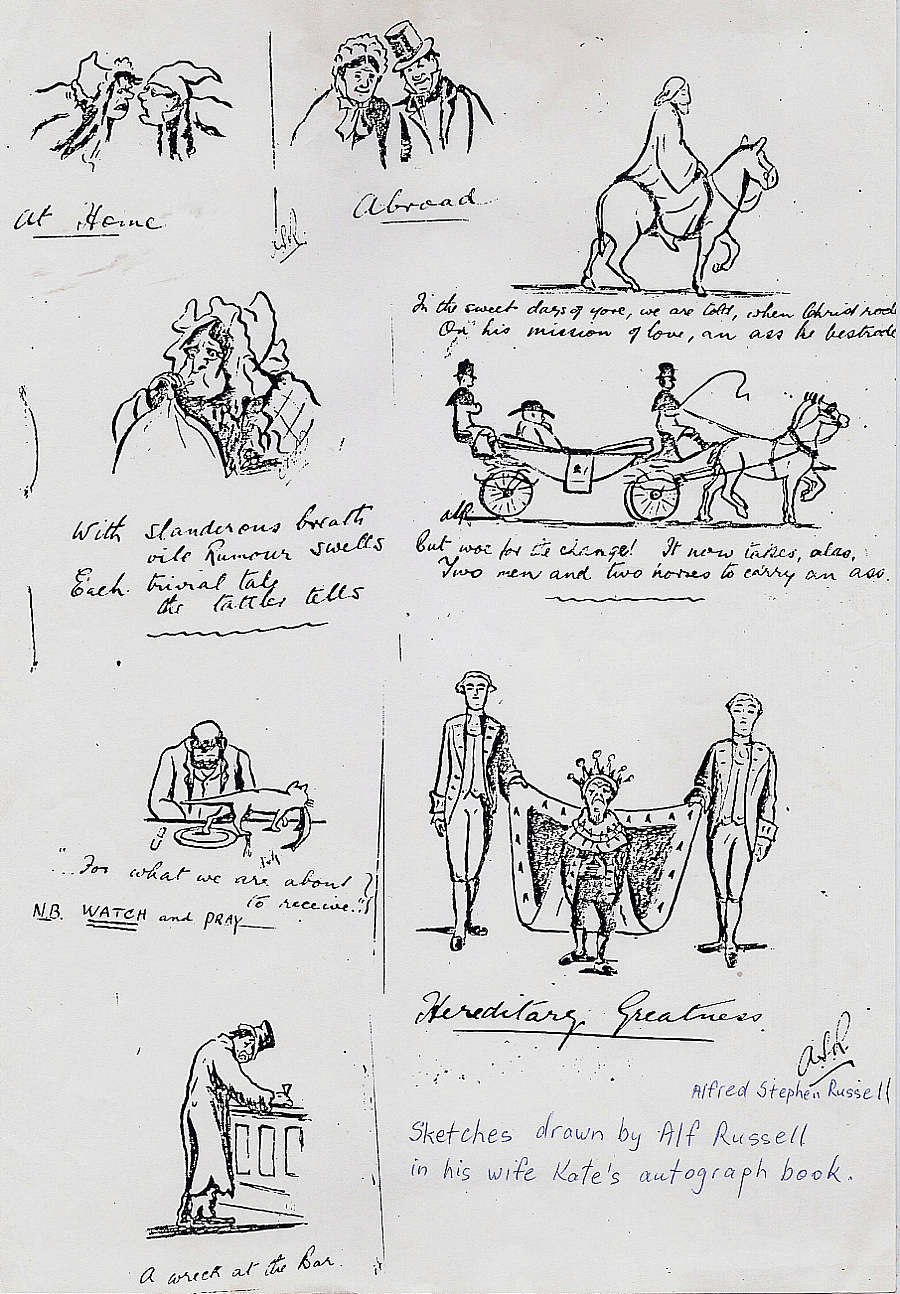 At Home
Abroad
ASR
In the sweet days of yore, we are told, when Christ rode
On his mission of love, an ass he bestrode
ASR
But woe for the change! It now takes, alas,
Two men and two horses to carry an ass.
With slanderous breath
vile Rumour swells
Each trivial tale
the tattler tells
"For what we are about
to receive.."
N.B. WATCH and PRAY
Hereditary Greatness
A.S.R
Alfred Stephen Russell
Sketches drawn by Alf Russell
in his wife Kate's autograph book.
A wreck at the Bar.